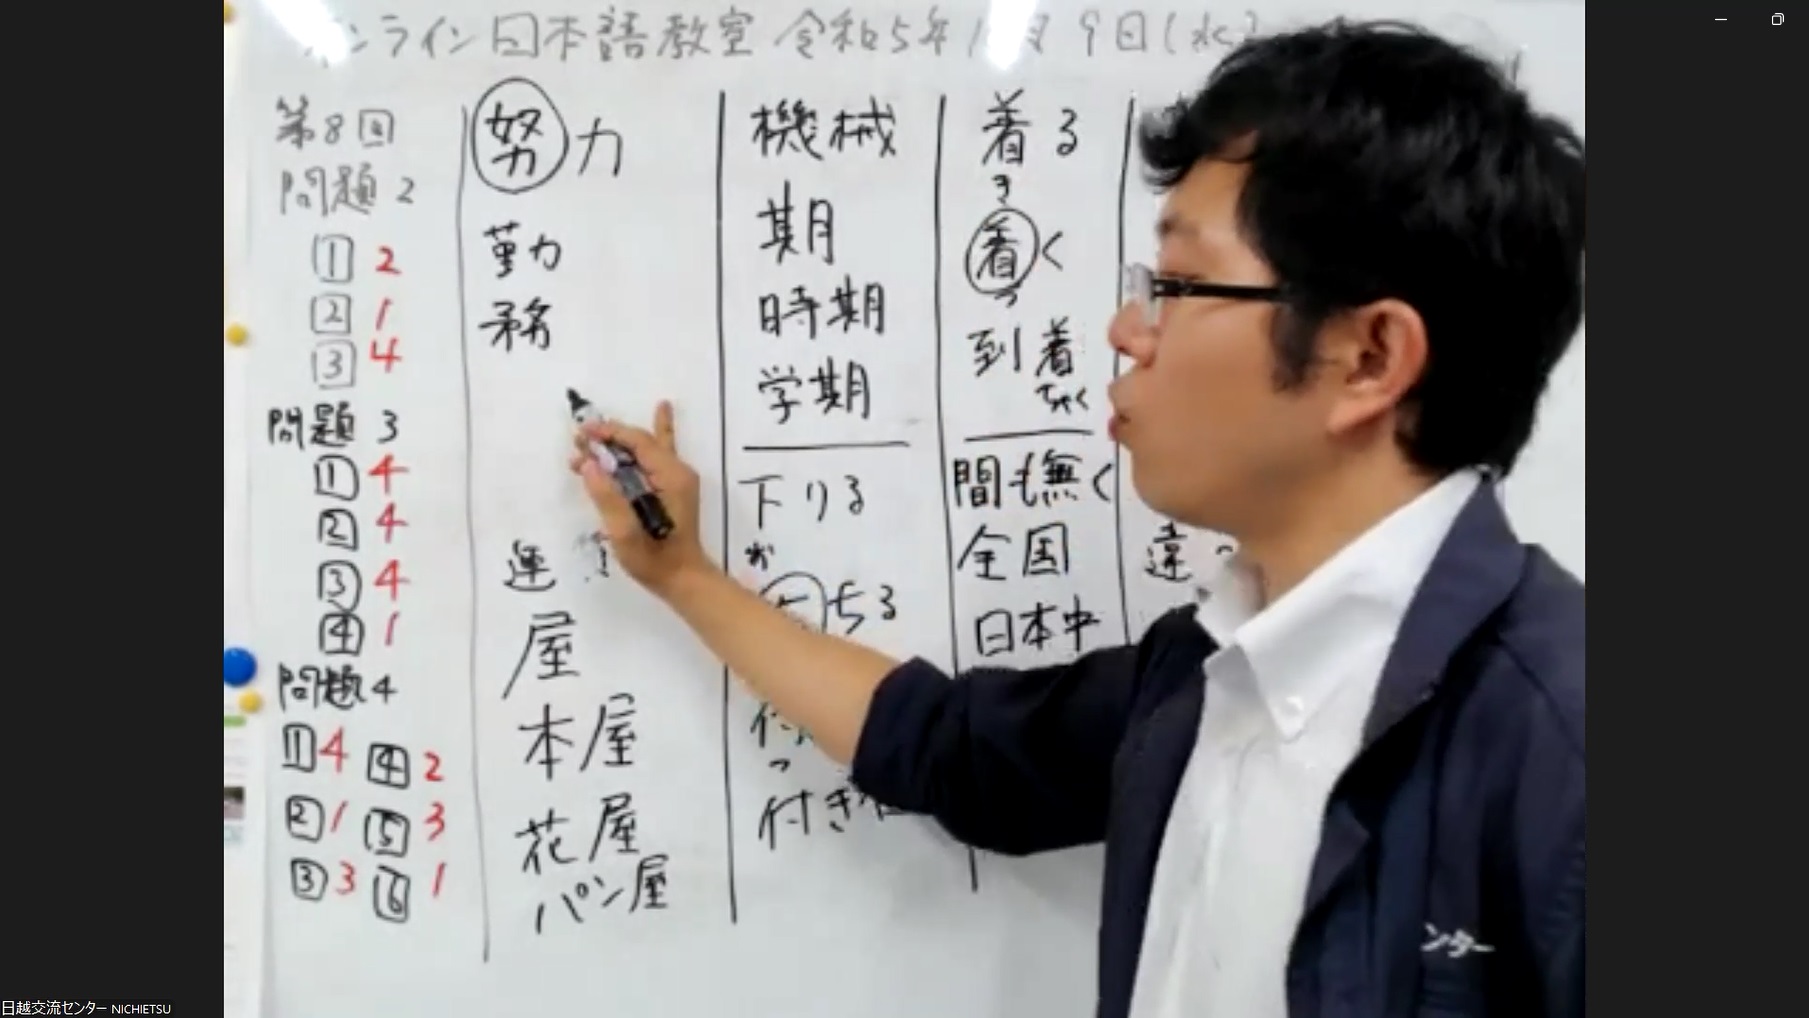 オンライン日本語教室 令和5年1月9日(水)
第8回
問題2
1 2
2 1
3 4
問題3
1 4
2 4
3 4
4 1
問題4
1 4 4 2
2 1 5 3
3 3 6 1
努力
勤
務
運
屋
本屋
花屋
パン屋
機械
期
時期
学期
下りる
お
ちる
付
っ
付き
着る
き
着く
つ
到着
ちゃく
間も無く
全国
日本中
違っ
ンター
日越交流センター NICHIETSU